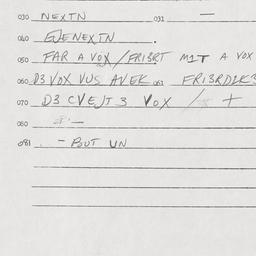 030 NEXTN 031 —
040 GJENEXTN .
050 FAR A VOX / FRIBRT M1T A VOX
060 D3 VOX VUS AVEK 061 FRIBRDLK3
070 D3 CVEJT 3 VOX / +
080 —
081 . – BOUT UN